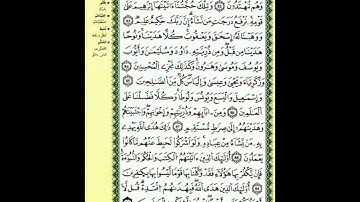 وَهُم مُّهْتَدُونَ ﴿٨٢﴾ وَتِلْكَ حُجَّتُنَآ ءَاتَيْنَٰهَآ إِبْرَٰهِيمَ عَلَىٰ
قَوْمِهِۦ نَرْفَعُ دَرَجَٰتٍ مَّن نَّشَآءُ إِنَّ رَبَّكَ حَكِيمٌ عَلِيمٌ ﴿٨٣﴾
وَوَهَبْنَا لَهُۥٓ إِسْحَٰقَ وَيَعْقُوبَ كُلًّا هَدَيْنَا وَنُوحًا
هَدَيْنَا مِن قَبْلُ وَمِن ذُرِّيَّتِهِۦ دَاوُۥدَ وَسُلَيْمَٰنَ وَأَيُّوبَ
وَيُوسُفَ وَمُوسَىٰ وَهَٰرُونَ وَكَذَٰلِكَ نَجْزِى ٱلْمُحْسِنِينَ ﴿٨٤﴾
وَزَكَرِيَّا وَيَحْيَىٰ وَعِيسَىٰ وَإِلْيَاسَ كُلٌّ مِّنَ ٱلصَّٰلِحِينَ ﴿٨٥﴾
وَإِسْمَٰعِيلَ وَٱلْيَسَعَ وَيُونُسَ وَلُوطًا وَكُلًّا فَضَّلْنَا عَلَى
ٱلْعَٰلَمِينَ ﴿٨٦﴾ وَمِنْ ءَابَآئِهِمْ وَذُرِّيَّٰتِهِمْ وَإِخْوَٰنِهِمْ وَٱجْتَبَيْنَٰهُمْ
وَهَدَيْنَٰهُمْ إِلَىٰ صِرَٰطٍ مُّسْتَقِيمٍ ﴿٨٧﴾ ذَٰلِكَ هُدَى ٱللَّهِ يَهْدِى بِهِۦ
مَن يَشَآءُ مِنْ عِبَادِهِۦ وَلَوْ أَشْرَكُوا۟ لَحَبِطَ عَنْهُم مَّا كَانُوا۟
يَعْمَلُونَ ﴿٨٨﴾ أُو۟لَٰٓئِكَ ٱلَّذِينَ ءَاتَيْنَٰهُمُ ٱلْكِتَٰبَ وَٱلْحُكْمَ وَٱلنُّبُوَّةَ
فَإِن يَكْفُرْ بِهَا هَٰٓؤُلَآءِ فَقَدْ وَكَّلْنَا بِهَا قَوْمًا لَّيْسُوا۟ بِهَا بِكَٰفِرِينَ
﴿٨٩﴾ أُو۟لَٰٓئِكَ ٱلَّذِينَ هَدَى ٱللَّهُ فَبِهُدَىٰهُمُ ٱقْتَدِهْ قُل لَّآ